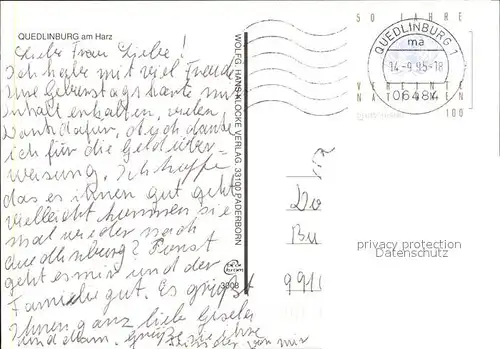 QUEDLINBURG am Harz
Liebe Frau Liebe!
Ich habe mit viel Freude
Ihre Geburtstagskarte mit
Inhalt erhalten, vielen
Dank dafür, auch danke
ich für die Geldüber-
weisung. Ich hoffe
das es ihnen gut geht
vielleicht kommen sie
mal wieder nach
Quedlinburg? Sonst
geht es mir und der
Familie gut. Es grüßt
Ihnen ganz liebe Gisela
und grüße ihre
Kinder von mir
WOLFG. HANS KLOCKE VERLAG, 33100 PADERBORN
3908
50 JAHRE
VEREINTE
NATIONEN
100
QUEDLINBURG 1
ma
14.-9.95-18
06484
Bu
privacy protection
Datenschutz